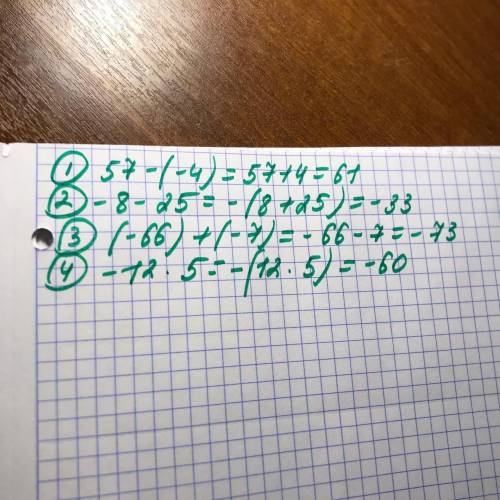 ① 57-(-4)=57+4=61
② -8-25=-(8+25)=-33
③ (-66)+(-7)=-66-7=-73
④ -12·5=-(12·5)=-60